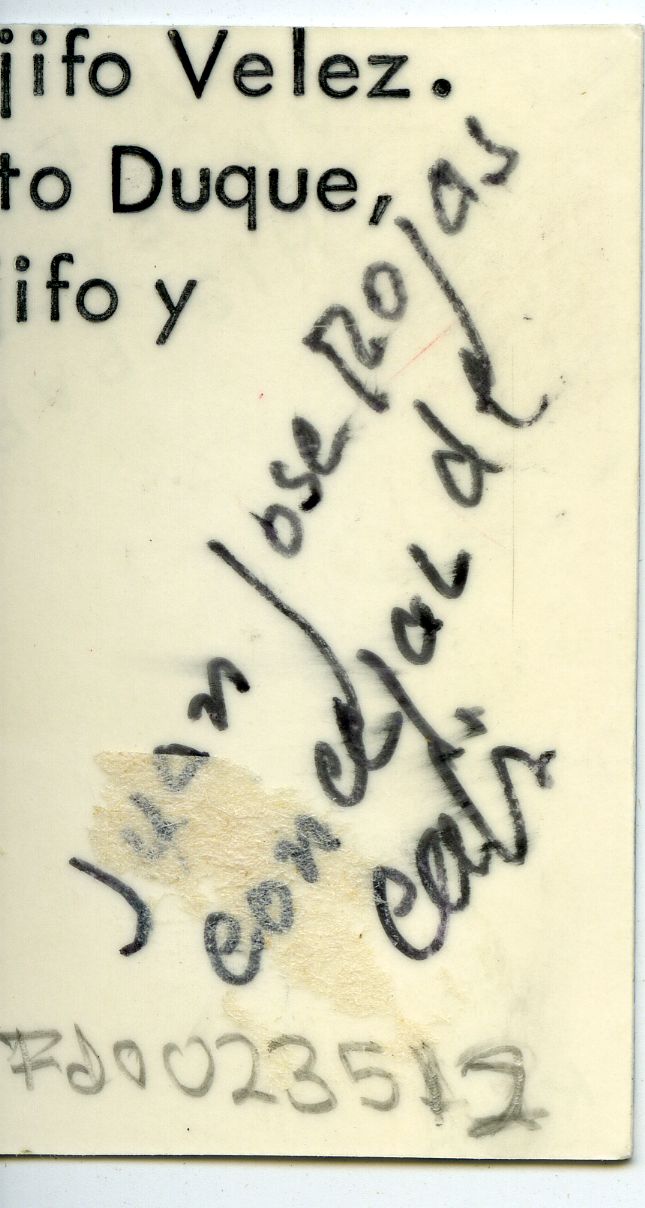 jifo Velez.
to Duque,
ifo y
Juan Jose Rojas
concejal de
Cali